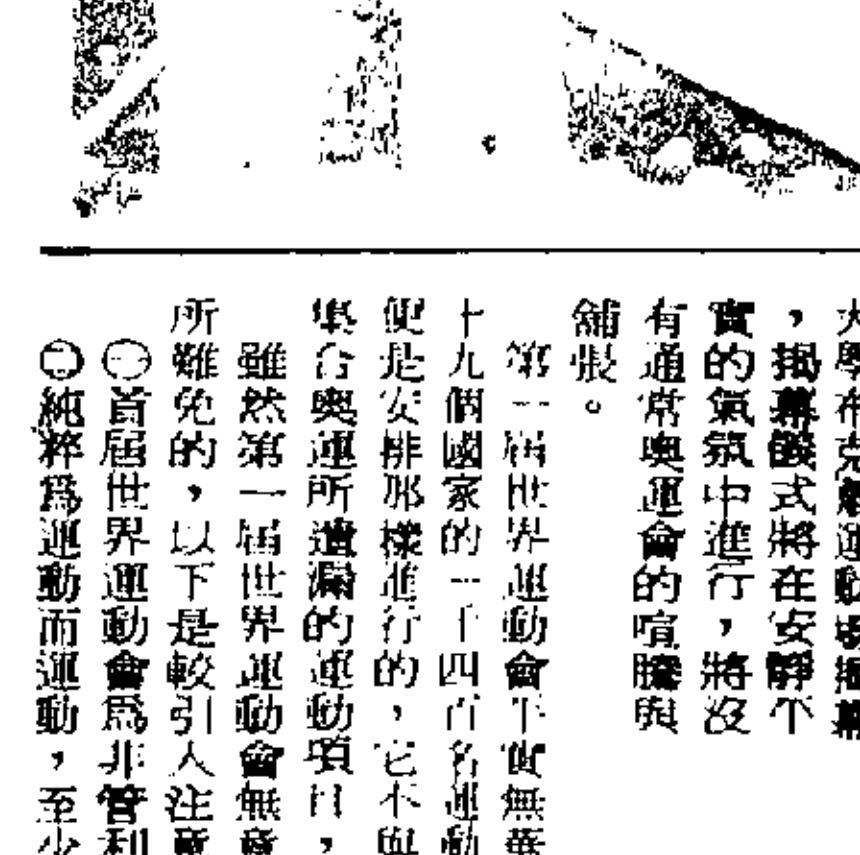 大學布克爾運動場揭幕
，揭幕儀式將在安靜平
實的氣氛中進行，將沒
有通常奧運會的喧騰與
舖張。
第一屆世界運動會平實無華
十九個國家的一千四百名運動
便是安排那樣進行的，它不與
集合奧運所遺漏的運動項目，
雖然第一屆世界運動會無意
所難免的，以下是較引人注意
㊀首屆世界運動會爲非營利
㊁純粹爲運動而運動，至少